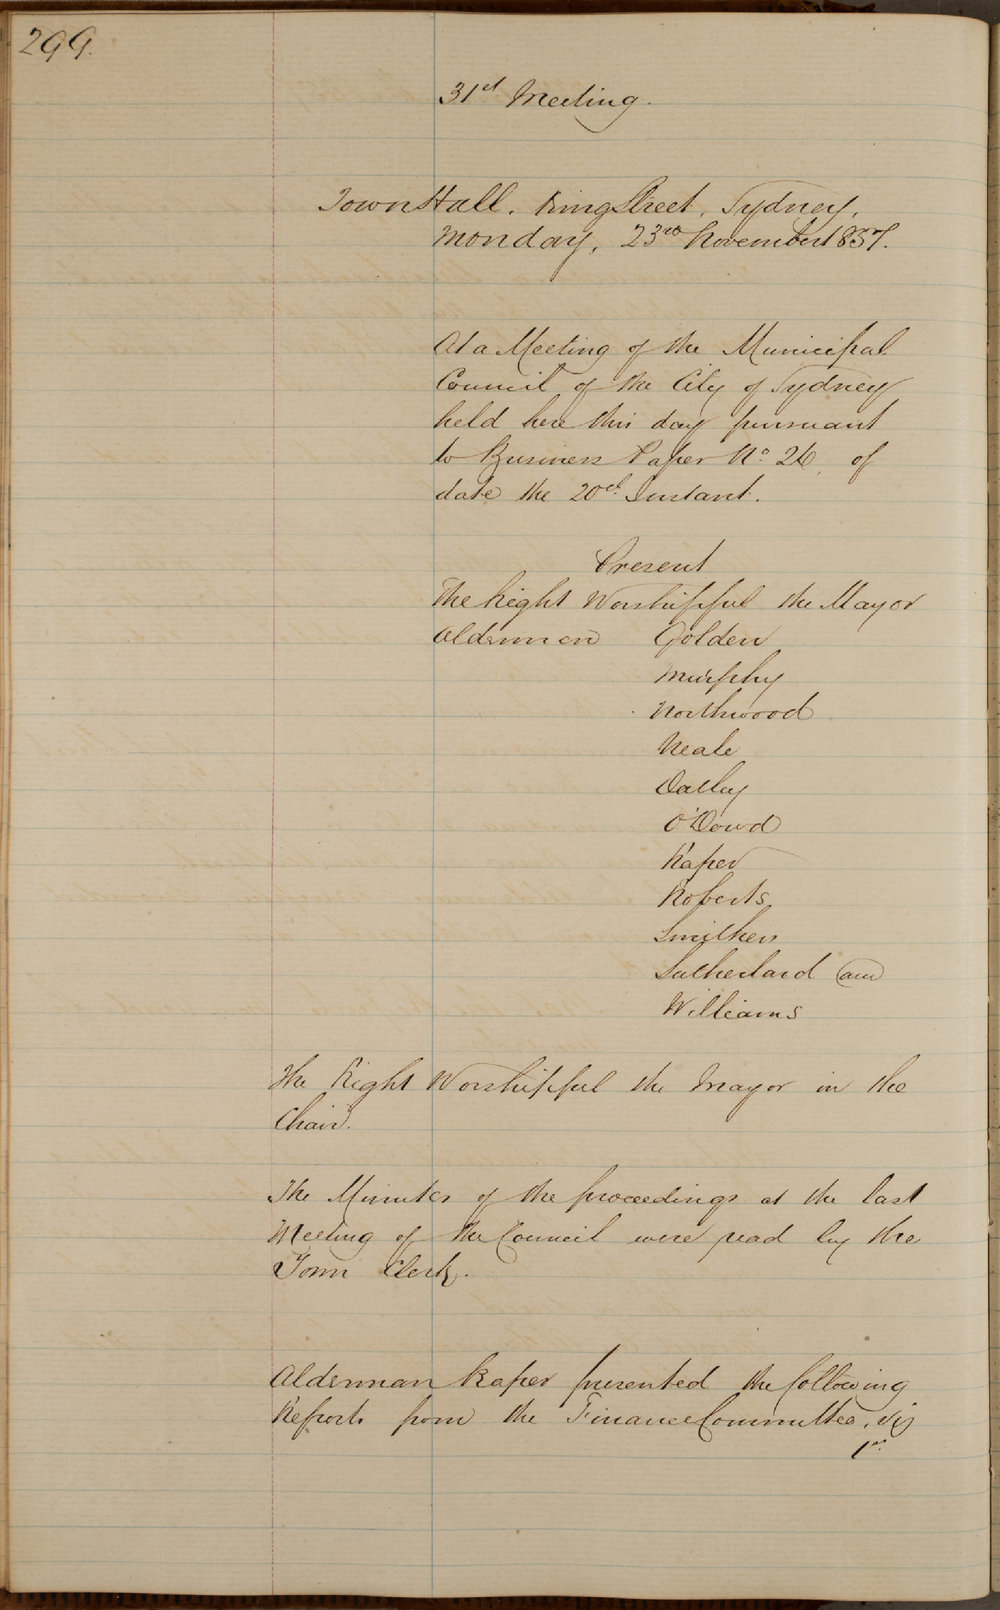 299.
31st Meeting.
Town Hall. King Street, Sydney,
Monday, 23rd November 1857.
At a Meeting of the Municipal
Council of the City of Sydney
held here this day pursuant
to Business Paper No. 26, of
date the 20th Instant.
Present
The Right Worshipful the Mayor
Aldermen Golden
Murphy
Northwood
Neale
Oatley
O'Dowd
Raper
Roberts
Smithers
Sutherland and
Williams
The Right Worshipful the Mayor in the
Chair.
The Minutes of the proceedings at the last
Meeting of the Council were read by the
Town Clerk.
Alderman Raper presented the following
Reports from the Finance Committee, viz
1st